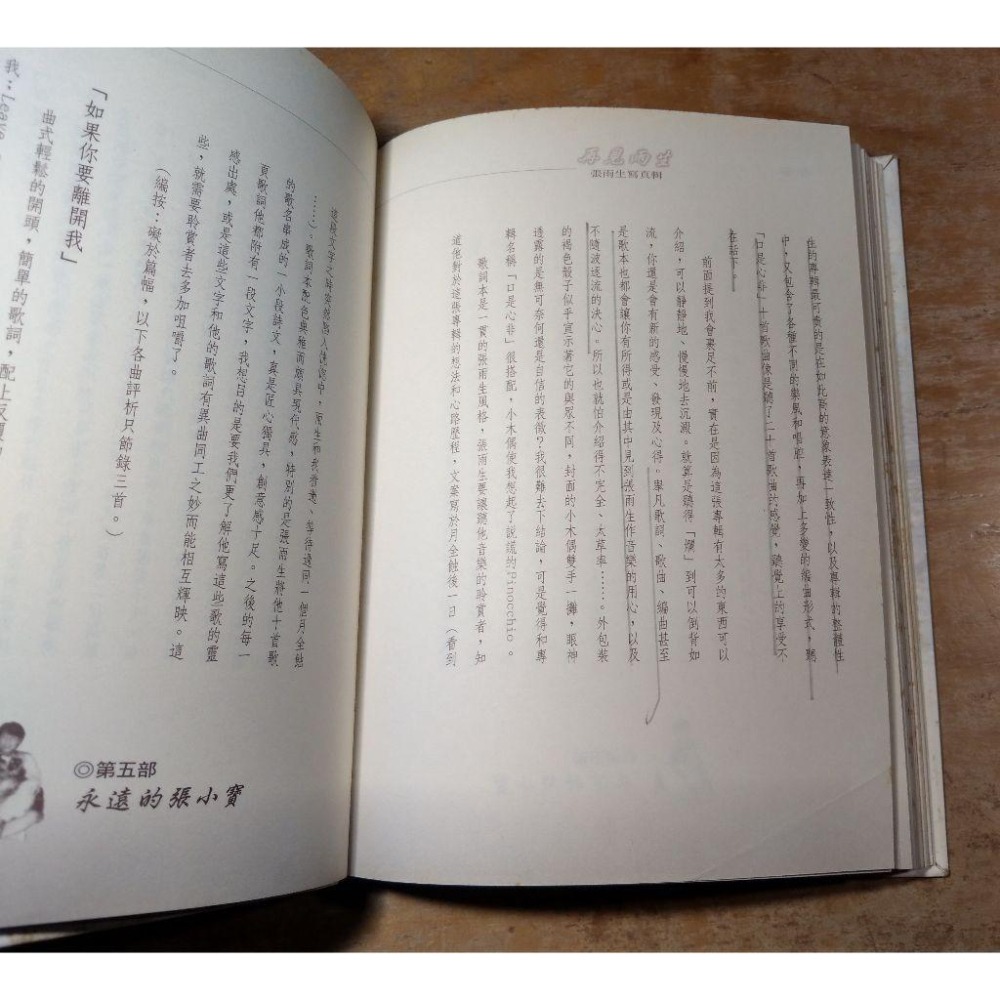 再見雨生
張雨生寫真輯
住的專輯最可貴的是在如此新的意像表達一致性，以及專輯的整體性
中，又包含了各種不同的樂風和唱腔，再加上多變的編曲形式，聽
「口是心非」十首歌曲像是聽了二十首歌曲的感覺，聽覺上的享受不
在話下。
前面提到我會裹足不前，實在是因為這張專輯有太多的東西可以
介紹，可以靜靜地、慢慢地去沉澱。就算是聽得「爛」到可以倒背如
流，你還是會有新的感受、發現及心得。舉凡歌詞、歌曲、編曲甚至
是歌本也都會讓你有所得或是由其中見到張雨生作音樂的用心，以及
不隨波逐流的決心。所以也就怕介紹得不完全、太草率……。外包裝
的褐色骰子似乎宣示著它的與眾不同，封面的小木偶雙手一攤，眼神
透露的是無可奈何還是自信的表徵？我很難去下結論，可是覺得和專
輯名稱「口是心非」很搭配，小木偶使我想起了說謊的Pinocchio。
歌詞本是一貫的張雨生風格，張雨生要讓聽他音樂的聆賞者，知
道他對於這張專輯的想法和心路歷程，文案寫於月全蝕後一日（看到
這段文字之時突然陷入恍惚中，
……）。歌詞本
的歌名串成的一小段詩文，真是匠心獨具，創意感十足。之後的每一
頁歌詞他都附有一段文字，我想目的是要我們更了解他寫這些歌的靈
感出處，或是這些文字和他的歌詞有異曲同工之妙而能相互輝映。這
些，就需要聆賞者去多加咀嚼了。
（編按：礙於篇幅，以下各曲評析只節錄三首。）
「如果你要離開我」
曲式輕鬆的開頭，簡單的歌詞，配上反覆的
我：Leave
◎第五部
永遠的張小寶